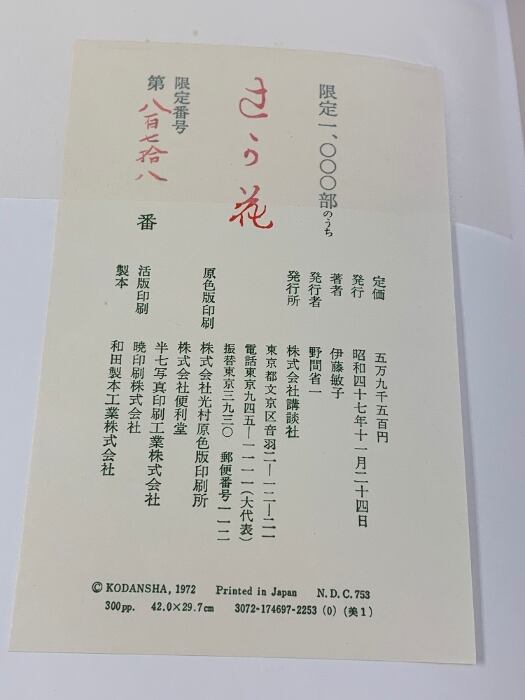 限定一、〇〇〇部のうち
辻が花
限定番号
第八百七拾八番
定価　五万九千五百円
発行　昭和四十七年十一月二十四日
著者　伊藤敏子
発行者　野間省一
発行所　株式会社講談社
東京都文京区音羽二ー一二ー二一
電話東京九四五ー一一一一(大代表)
振替東京三九三〇　郵便番号一一二
原色版印刷　株式会社光村原色版印刷所
株式会社便利堂
半七写真印刷工業株式会社
活版印刷　暁印刷株式会社
製本　和田製本工業株式会社
© KODANSHA, 1972　Printed in Japan　N. D. C. 753
300 pp.　42.0×29.7cm　3072-174697-2253 (0) (美1)